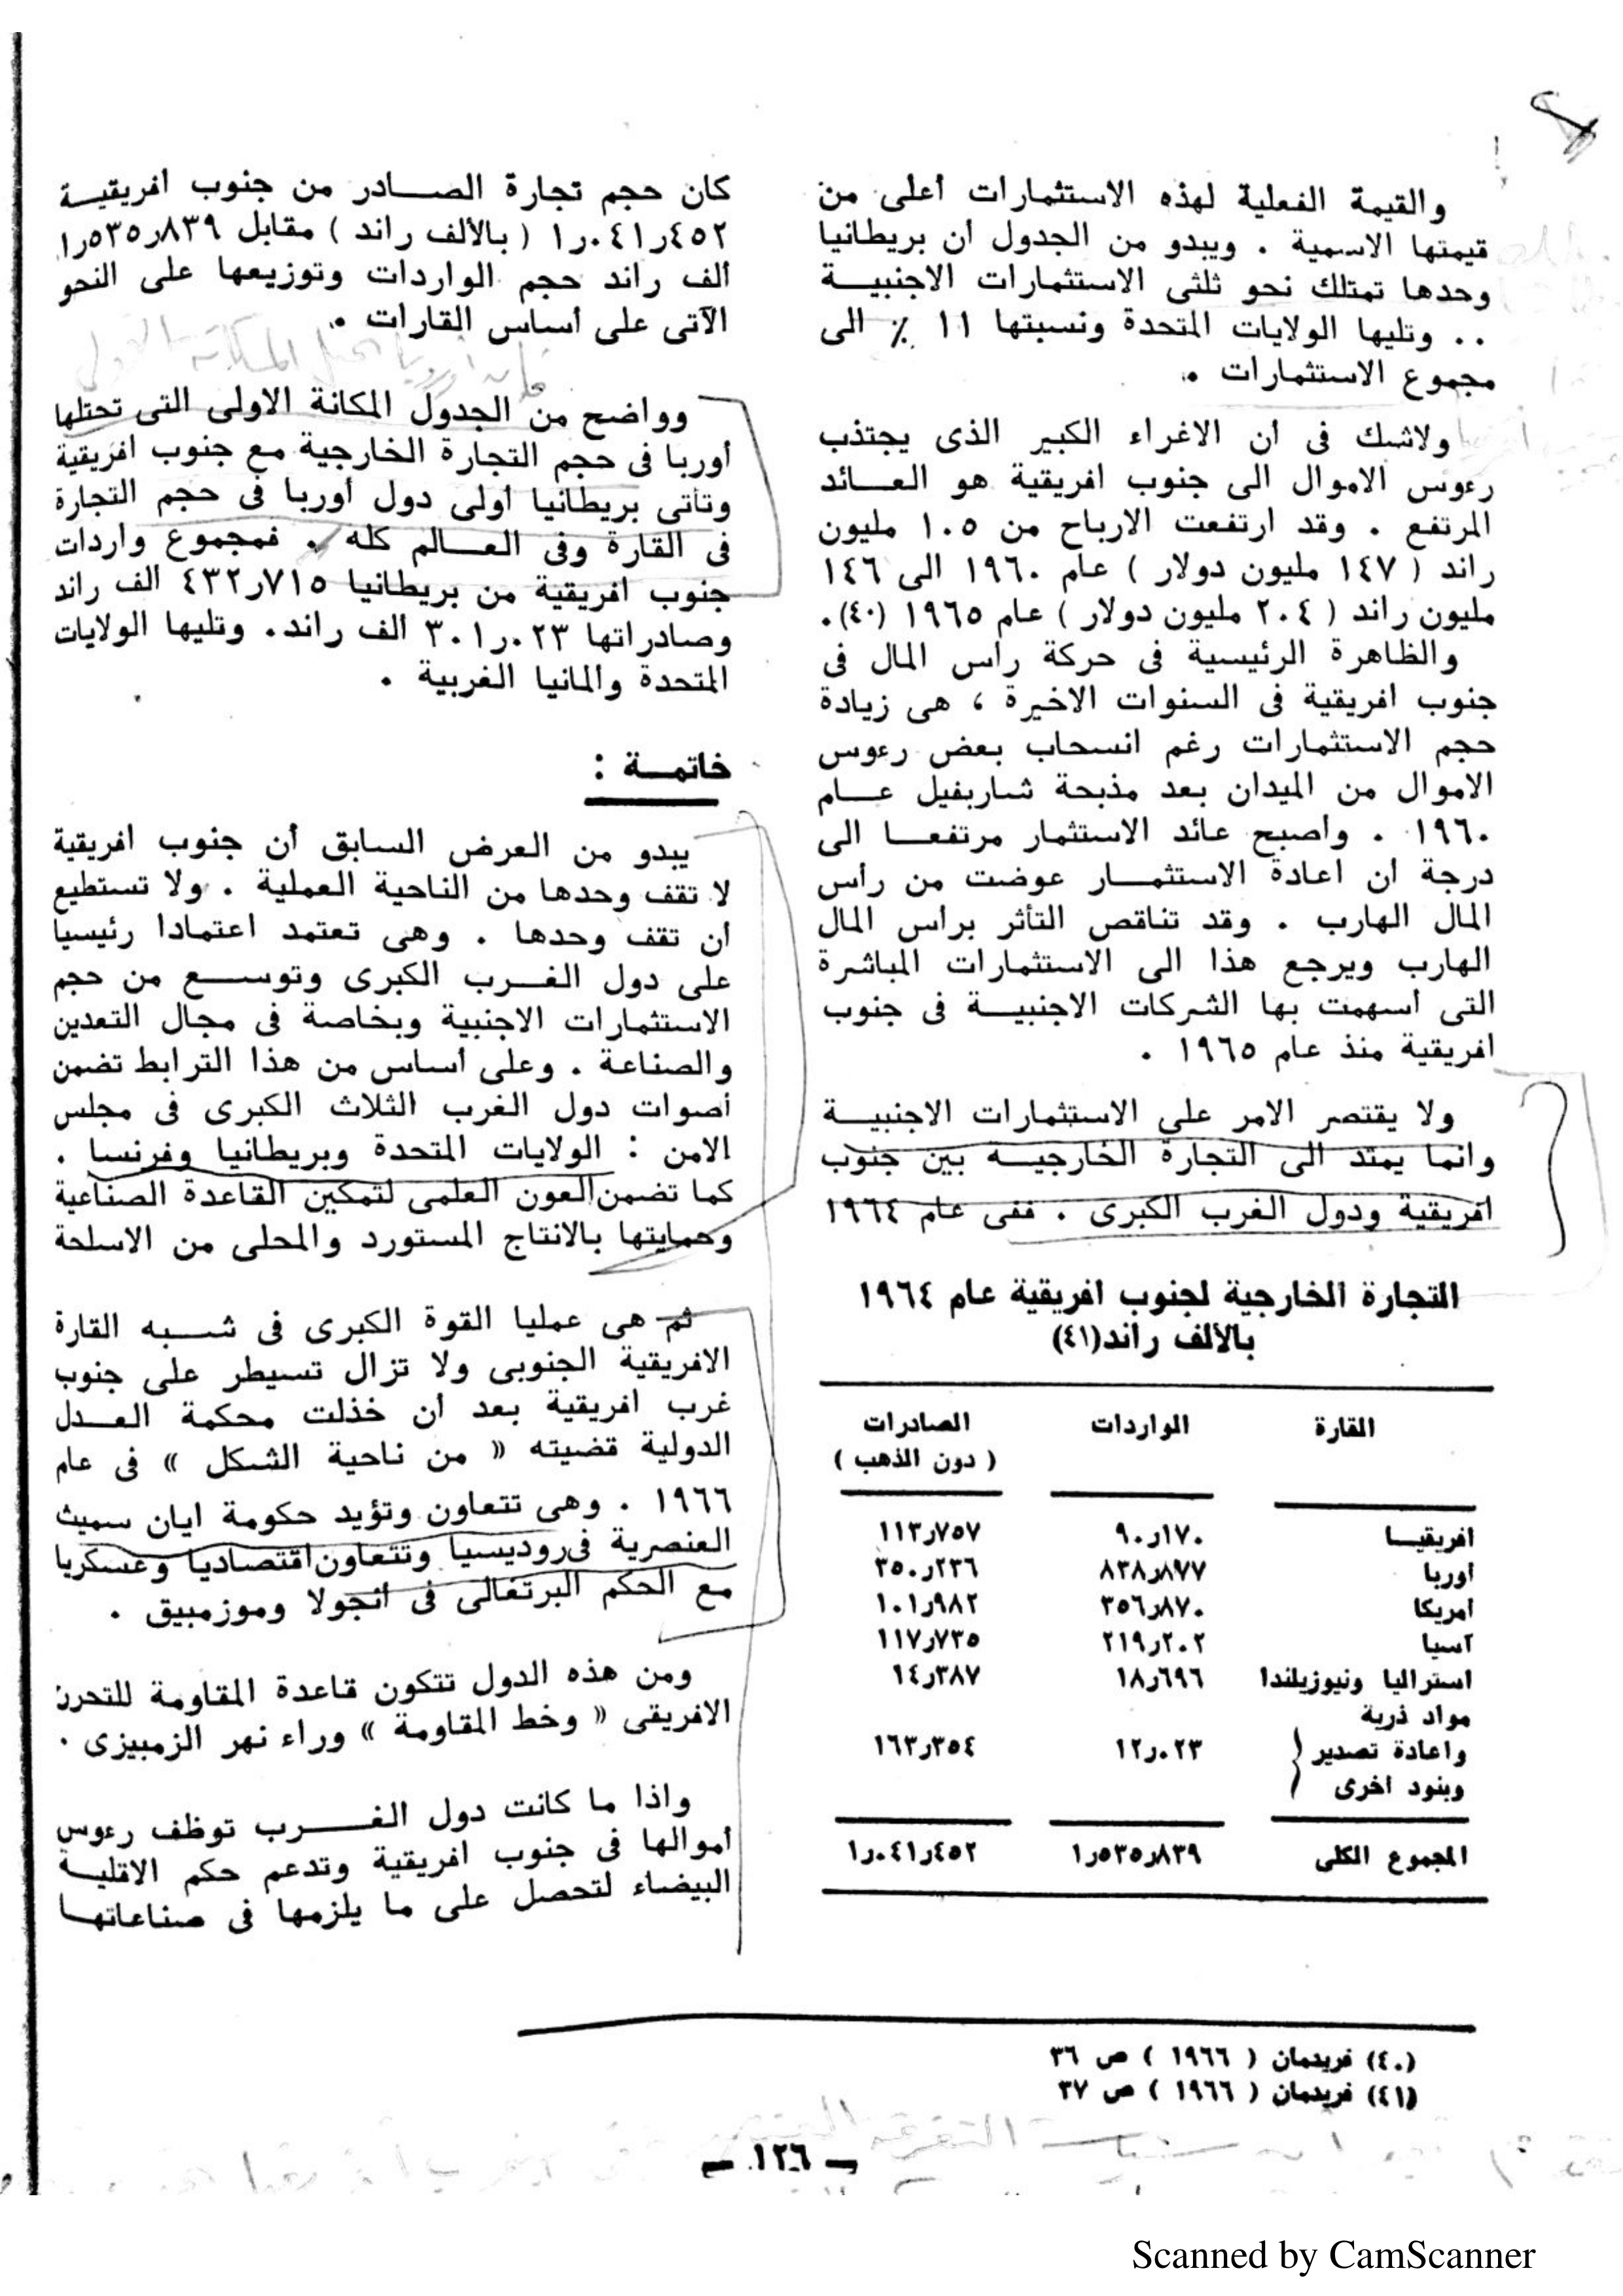 والقيمة الفعلية لهذه الاستثمارات أعلى من
قيمتها الاسمية . ويبدو من الجدول أن بريطانيا
وحدها تمتلك نحو ثلثى الاستثمارات الاجنبيــة
.. وتليها الولايات المتحدة ونسبتها ١١ ٪ الى
مجموع الاستثمارات .
ولاشك فى أن الاغراء الكبير الذى يجتذب
رءوس الاموال الى جنوب افريقية هو العــائد
المرتفع . وقد ارتفعت الارباح من ١٠٥ مليون
راند ( ١٤٧ مليون دولار ) عام ١٩٦٠ الى ١٤٦
مليون راند ( ٢٠٤ مليون دولار ) عام ١٩٦٥ (٤٠).
والظاهرة الرئيسية فى حركة رأس المال فى
جنوب افريقية فى السنوات الاخيرة ، هى زيادة
حجم الاستثمارات رغم انسحاب بعض رءوس
الاموال من الميدان بعد مذبحة شاربفيل عــام
١٩٦٠ . وأصبح عائد الاستثمار مرتفعــا الى
درجة أن اعادة الاستثمــار عوضت من رأس
المال الهارب . وقد تناقص التأثر برأس المال
الهارب ويرجع هذا الى الاستثمارات المباشرة
التى أسهمت بها الشركات الاجنبيــة فى جنوب
افريقية منذ عام ١٩٦٥ .
ولا يقتصر الامر على الاستثمارات الاجنبيــة
وانما يمتد الى التجارة الخارجيــة بين جنوب
افريقية ودول الغرب الكبرى . ففى عام ١٩٦٤
التجارة الخارجية لجنوب افريقية عام ١٩٦٤
بالألف راند(٤١)
القارة الواردات الصادرات
( دون الذهب )
افريقيــا ٩٠ر١٧٠ ١١٣ر٧٥٧
أوربا ٨٣٨ر٨٧٧ ٣٥٠ر٢٣٦
أمريكا ٣٥٦ر٨٧٠ ١٠١ر٩٨٢
آسيا ٢١٩ر٢٠٢ ١١٧ر٧٣٥
استراليا ونيوزيلندا ١٨ر٦٩٦ ١٤ر٣٨٧
مواد ذرية
واعادة تصدير ١٢ر٠٢٣ ١٦٣ر٣٥٤
وبنود أخرى
المجموع الكلى ١ر٥٣٥ر٨٣٩ ١ر٠٤١ر٤٥٢
كان حجم تجارة الصــادر من جنوب افريقيــة
١ر٠٤١ر٤٥٢ ( بالألف راند ) مقابل ١ر٥٣٥ر٨٣٩
ألف راند حجم الواردات وتوزيعها على النحو
الآتى على أساس القارات .
وواضح من الجدول المكانة الاولى التى تحتلها
أوربا فى حجم التجارة الخارجية مع جنوب افريقية
وتأتى بريطانيا أولى دول أوربا فى حجم التجارة
فى القارة وفى العــالم كله . فمجموع واردات
جنوب افريقية من بريطانيا ٤٣٢ر٧١٥ الف راند
وصادراتها ٣٠١ر٠٢٣ الف راند. وتليها الولايات
المتحدة والمانيا الغربية .
خاتمــة :
يبدو من العرض السابق أن جنوب افريقية
لا تقف وحدها من الناحية العملية . ولا تستطيع
أن تقف وحدها . وهى تعتمد اعتمادا رئيسيا
على دول الغــرب الكبرى وتوســع من حجم
الاستثمارات الاجنبية وبخاصة فى مجال التعدين
والصناعة . وعلى أساس من هذا الترابط تضمن
أصوات دول الغرب الثلاث الكبرى فى مجلس
الامن : الولايات المتحدة وبريطانيا وفرنسا .
كما تضمن العون العلمى لتمكين القاعدة الصناعية
وحمايتها بالانتاج المستورد والمحلى من الاسلحة
ثم هى عمليا القوة الكبرى فى شــبه القارة
الافريقية الجنوبى ولا تزال تسيطر على جنوب
غرب افريقية بعد أن خذلت محكمة العــدل
الدولية قضيته « من ناحية الشكل » فى عام
١٩٦٦ . وهى تتعاون وتؤيد حكومة ايان سميث
العنصرية فى روديسيا وتتعاون اقتصاديا وعسكريا
مع الحكم البرتغالى فى أنجولا وموزمبيق .
ومن هذه الدول تتكون قاعدة المقاومة للتحرر
الافريقى « وخط المقاومة » وراء نهر الزمبيزى .
واذا ما كانت دول الغــرب توظف رءوس
أموالها فى جنوب افريقية وتدعم حكم الاقليــة
البيضاء لتحصل على ما يلزمها فى صناعاتهــا
(٤٠) فريدمان ( ١٩٦٦ ) ص ٣٦
(٤١) فريدمان ( ١٩٦٦ ) ص ٣٧
— ١٢٦ —
Scanned by CamScanner